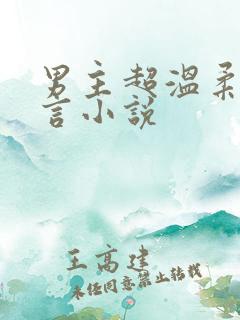 男主超温柔
言小说
王高建
未经同意禁止转载